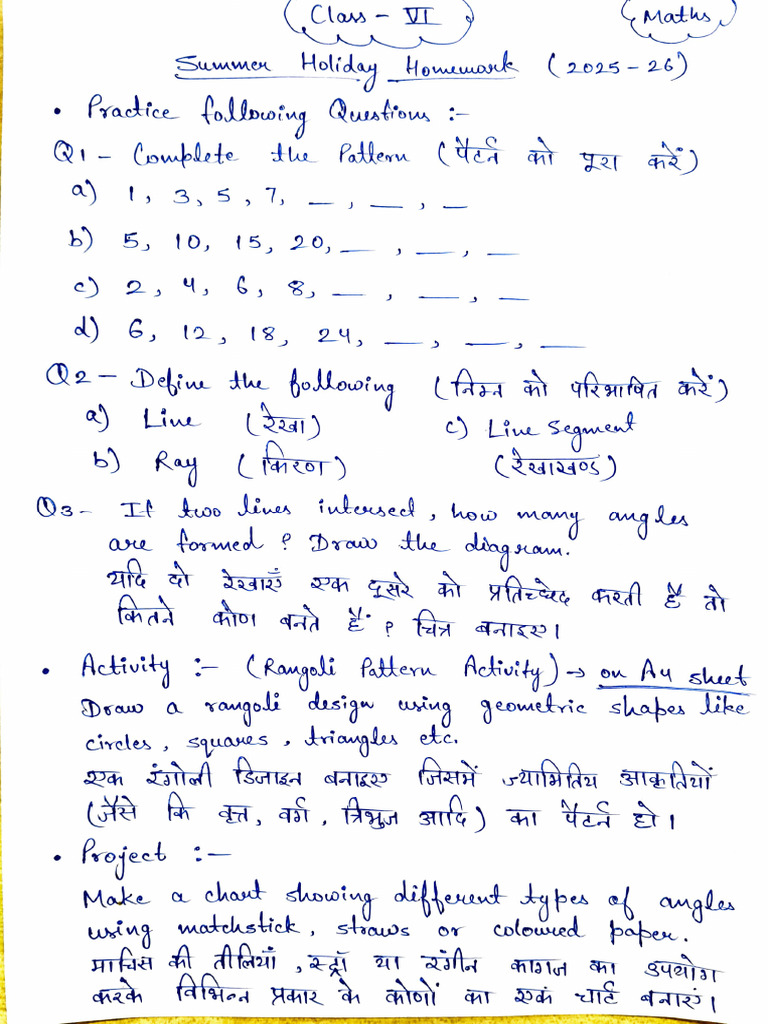 Class - VI
Maths
Summer Holiday Homework (2025-26)
• Practice following Questions :-
Q1 - Complete the Pattern (पैटर्न को पूरा करें)
a) 1, 3, 5, 7, __, __, __
b) 5, 10, 15, 20, __, __, __
c) 2, 4, 6, 8, __, __, __
d) 6, 12, 18, 24, __, __, __
Q2 - Define the following (निम्न को परिभाषित करें)
a) Line (रेखा) c) Line Segment
b) Ray (किरण) (रेखाखण्ड)
Q3 - If two lines intersect, how many angles
are formed ? Draw the diagram.
यदि दो रेखाएँ एक दूसरे को प्रतिच्छेद करती हैं तो
कितने कोण बनते हैं ? चित्र बनाइए।
• Activity :- (Rangoli Pattern Activity) → on A4 sheet
Draw a rangoli design using geometric shapes like
circles, squares, triangles etc.
एक रंगोली डिजाइन बनाइए जिसमें ज्यामितिय आकृतियों
(जैसे कि वृत्त, वर्ग, त्रिभुज आदि) का पैटर्न हो।
• Project :-
Make a chart showing different types of angles
using matchstick, straws or coloured paper.
माचिस की तीलियाँ, स्ट्रॉ या रंगीन कागज का उपयोग
करके विभिन्न प्रकार के कोणों का एक चार्ट बनाएं।